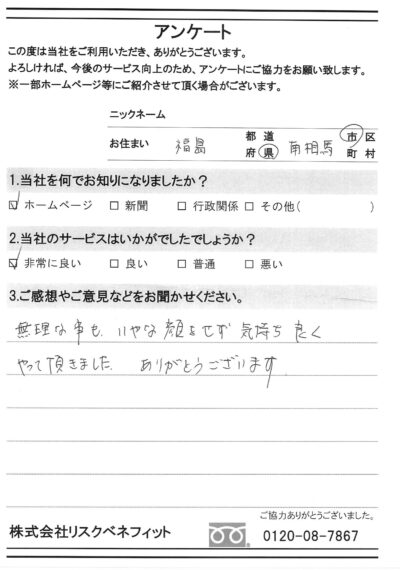 アンケート
この度は当社をご利用いただき、ありがとうございます。
よろしければ、今後のサービス向上のため、アンケートにご協力をお願い致します。
※一部ホームページ等にご紹介させて頂く場合がございます。
ニックネーム
お住まい 福島 都道府県 南相馬 市区町村
1.当社を何でお知りになりましたか?
☑ ホームページ □ 新聞 □ 行政関係 □ その他( )
2.当社のサービスはいかがでしたでしょうか?
☑ 非常に良い □ 良い □ 普通 □ 悪い
3.ご感想やご意見などをお聞かせください。
無理な事も、いやな顔もせず気持ち良く
やって頂きました。 ありがとうございます
ご協力ありがとうございました。
株式会社リスクベネフィット 0120-08-7867